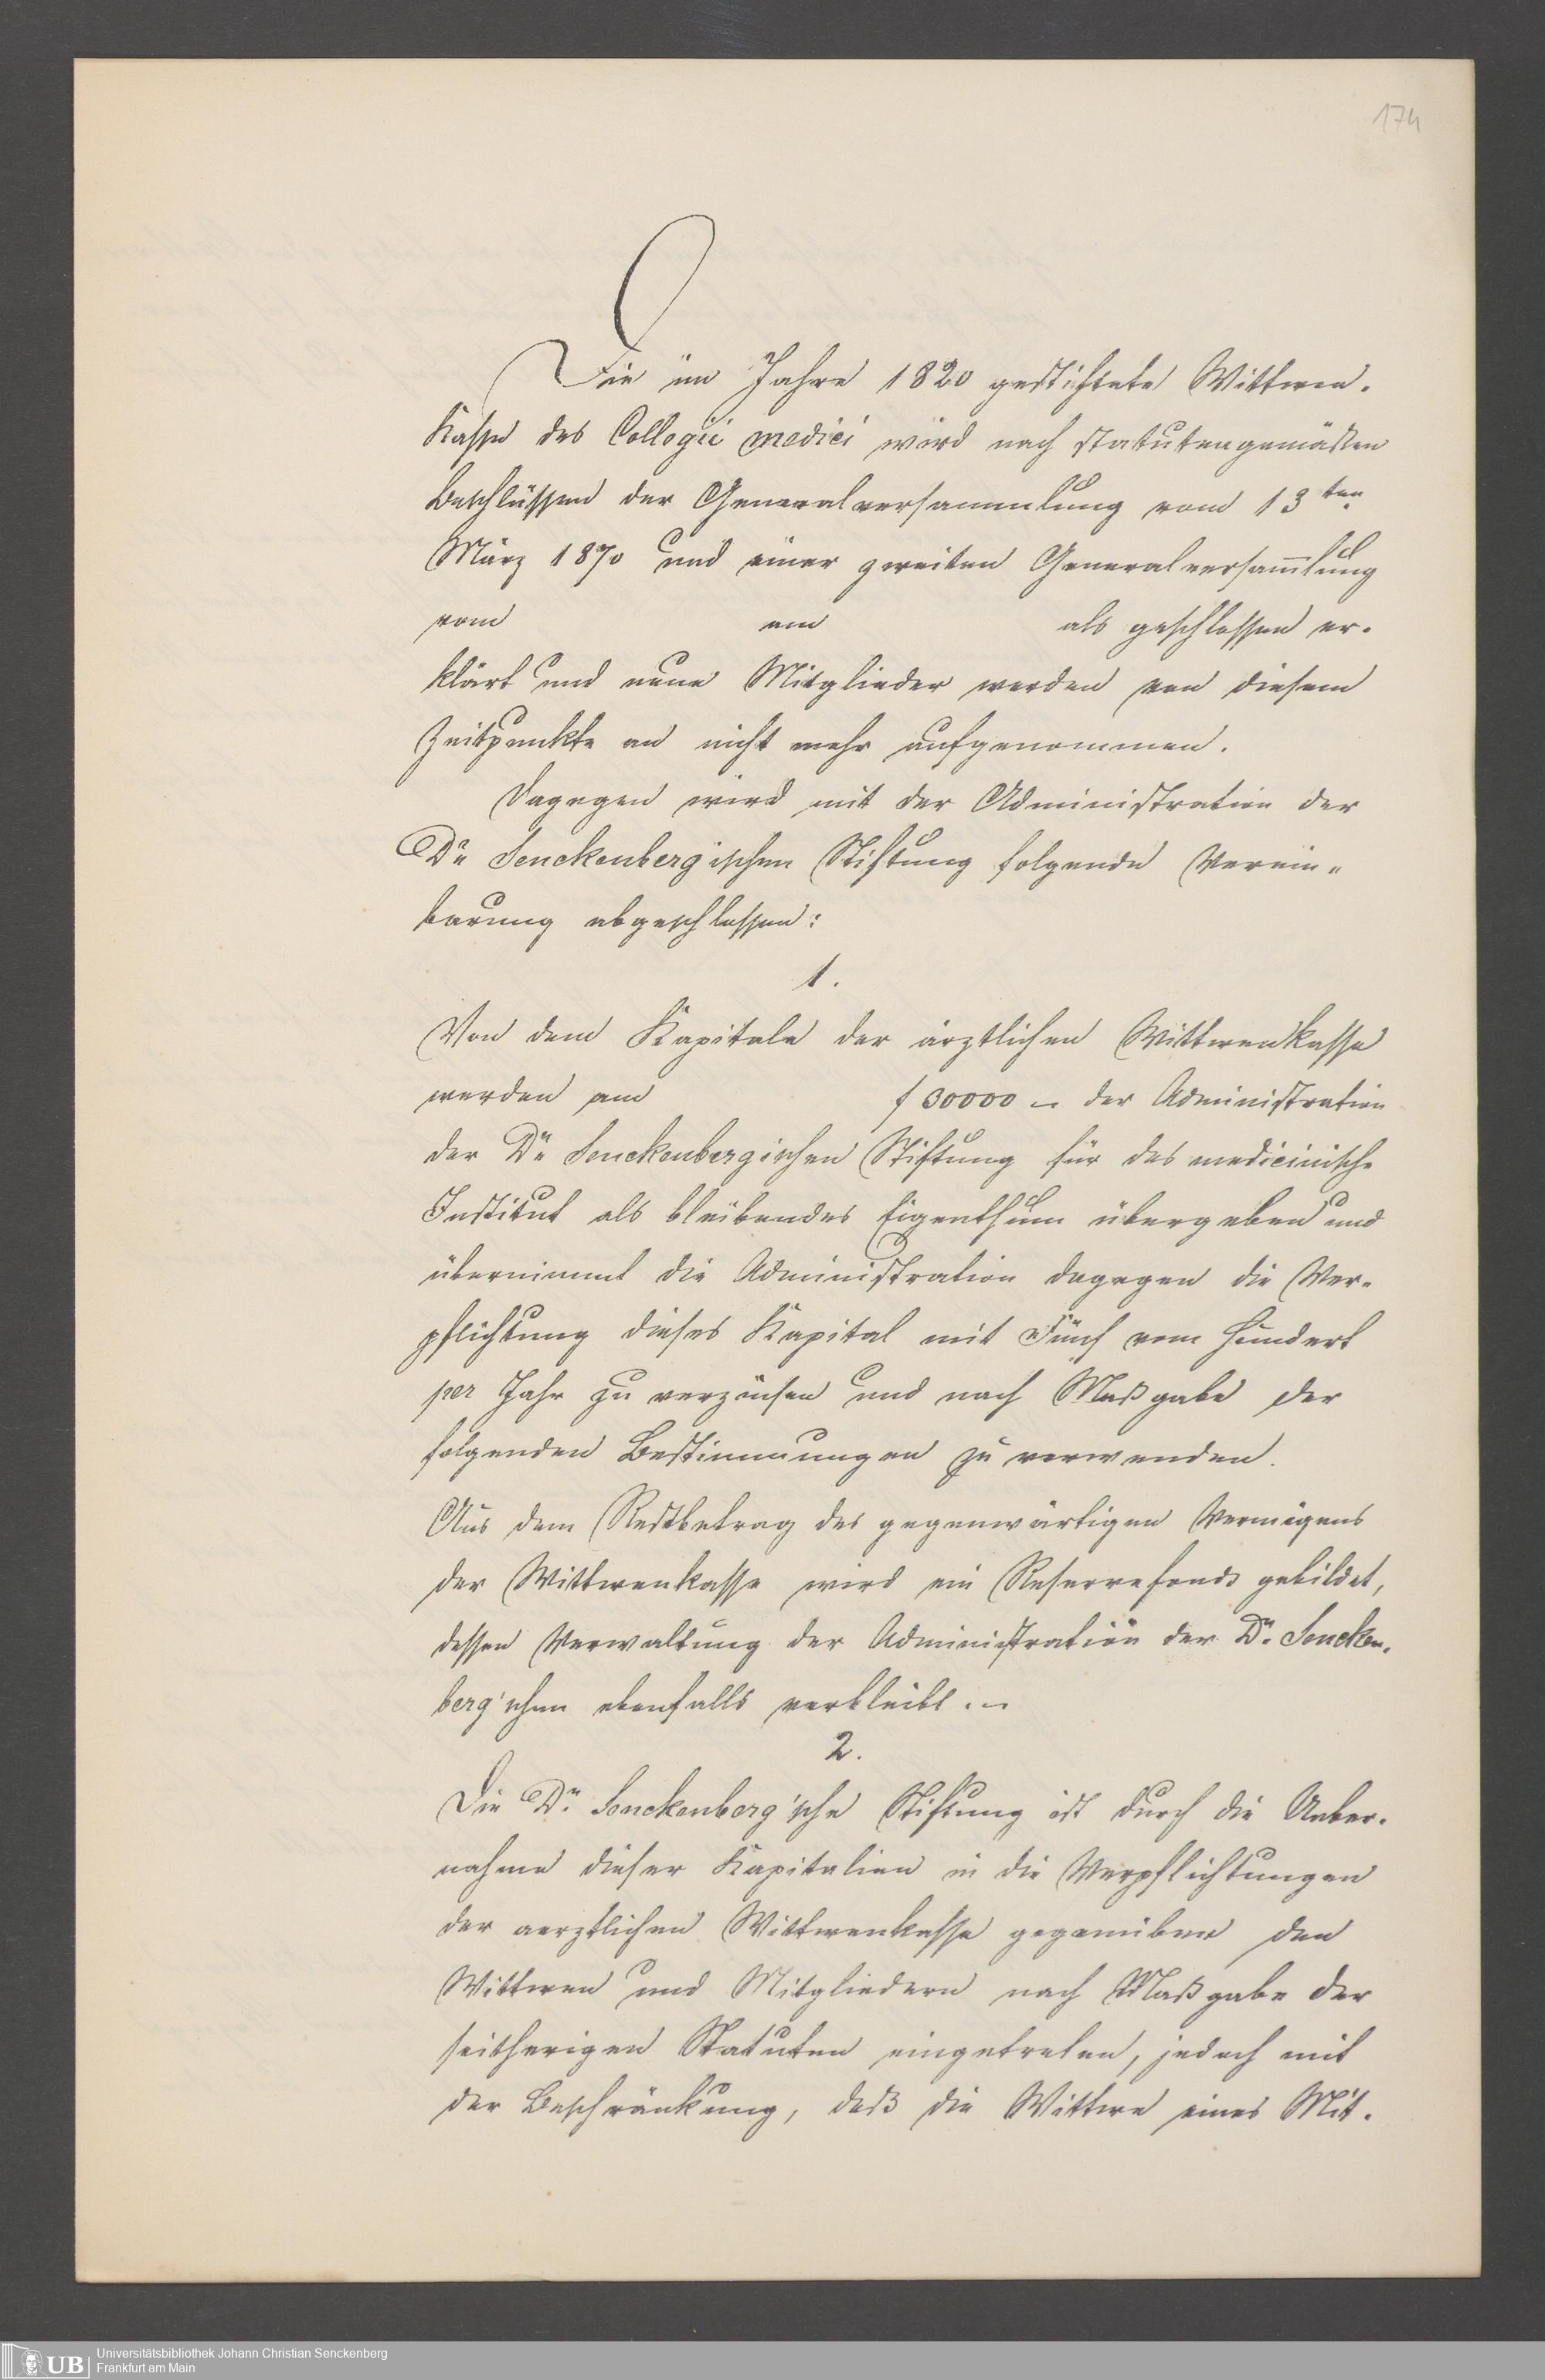 174
Die im Jahre 1820 gestiftete Wittwen-
Kasse des Collegii medici wird nach statutengemäßen
Beschlüssen der Generalversammlung vom 13ten
März 1870 und einer zweiten Generalversam̅lung
vom am als geschlossen er-
klärt und neue Mitglieder werden von diesem
Zeitpunkte an nicht mehr aufgenommen.
Dagegen wird mit der Administration der
Dr. Senckenbergischen Stiftung folgende Verein-
barung abgeschlossen:
1.
Von dem Kapitale der ärztlichen Wittwenkasse
werden am f 30000 – der Administration
der Dr. Senckenbergischen Stiftung für das medicinische
Institut als bleibendes Eigenthum übergeben und
übernimmt die Administration dagegen die Ver-
pflichtung dieses Kapital mit Fünf vom Hundert
per Jahr zu verzinsen und nach Maßgabe der
folgenden Bestimmungen zu verwenden.
Aus dem Restbetrag des gegenwärtigen Vermögens
der Wittwenkasse wird ein Reservefonds gebildet,
dessen Verwaltung der Administration der Dr. Sencken-
berg'schen ebenfalls verbleibt. –
2.
Die Dr. Senckenberg'sche Stiftung ist durch die Ueber-
nahme dieser Kapitalien in die Verpflichtungen
der aerztlichen Wittwenkasse gegenüber den
Wittwen und Mitgliedern nach Maßgabe der
seitherigen Statuten eingetreten, jedoch mit
der Beschränkung, daß die Wittwe eines Mit-
UB
Universitätsbibliothek Johann Christian Senckenberg
Frankfurt am Main